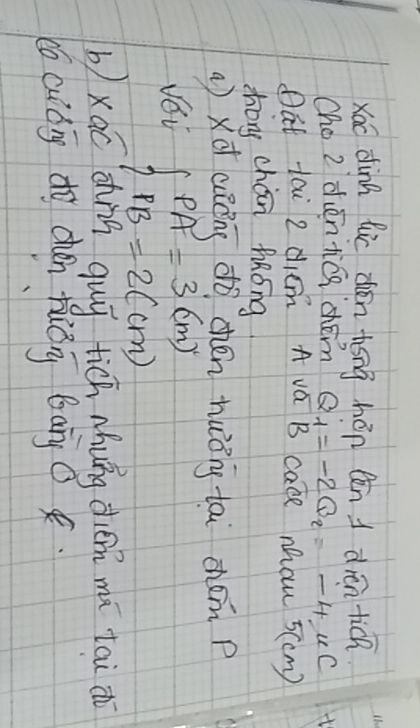 Xác định lực điện tổng hợp lên 1 điện tích.
Cho 2 điện tích điểm Q1 = -2Q2 = -4 μC
Đặt tại 2 điểm A và B cách nhau 5(cm)
trong chân không.
a) Xđ cường độ điện trường tại điểm P
với { PA = 3(cm)
PB = 2(cm)
b) Xác định quỹ tích những điểm mà tại đó
có cường độ điện trường bằng 0